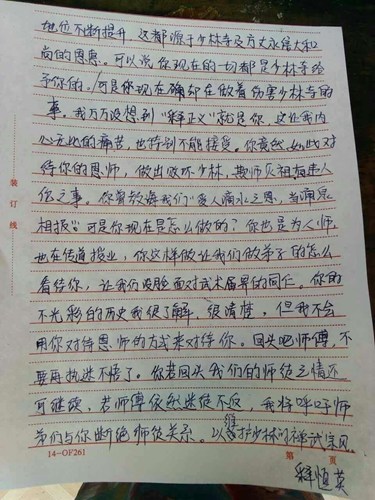 地位不断提升，这都源于少林寺及方丈永信大和
尚的恩惠。可以说你现在的一切都是少林寺给
予你的，可是你现在确却在做着伤害少林寺的
事。我万万没想到“释正义”就是你，这让我内
心无比的痛苦，也特别不能接受。你竟然如此对
待你的恩师，做出败坏少林，欺师灭祖
之事。你曾教诲我们“受人滴水之恩，当涌泉
相报”可是你现在是怎么做的？你也是为人师，
也在传道授业，你这样做让我们做弟子的怎么
看待你，让我们没脸面对武术届界的同仁。你的
不光彩的历史我很了解，很清楚，但我不会
用你对待恩师的方式来对待你。回头吧师傅，不
要再执迷不悟了。你若回头我们的师徒之情还
可继续，若师傅依然迷徒不返，我将呼吁师
弟们与你断绝师徒关系。以维护少林的禅武宗风。
14-OF261 第 页
释恒英
装订线